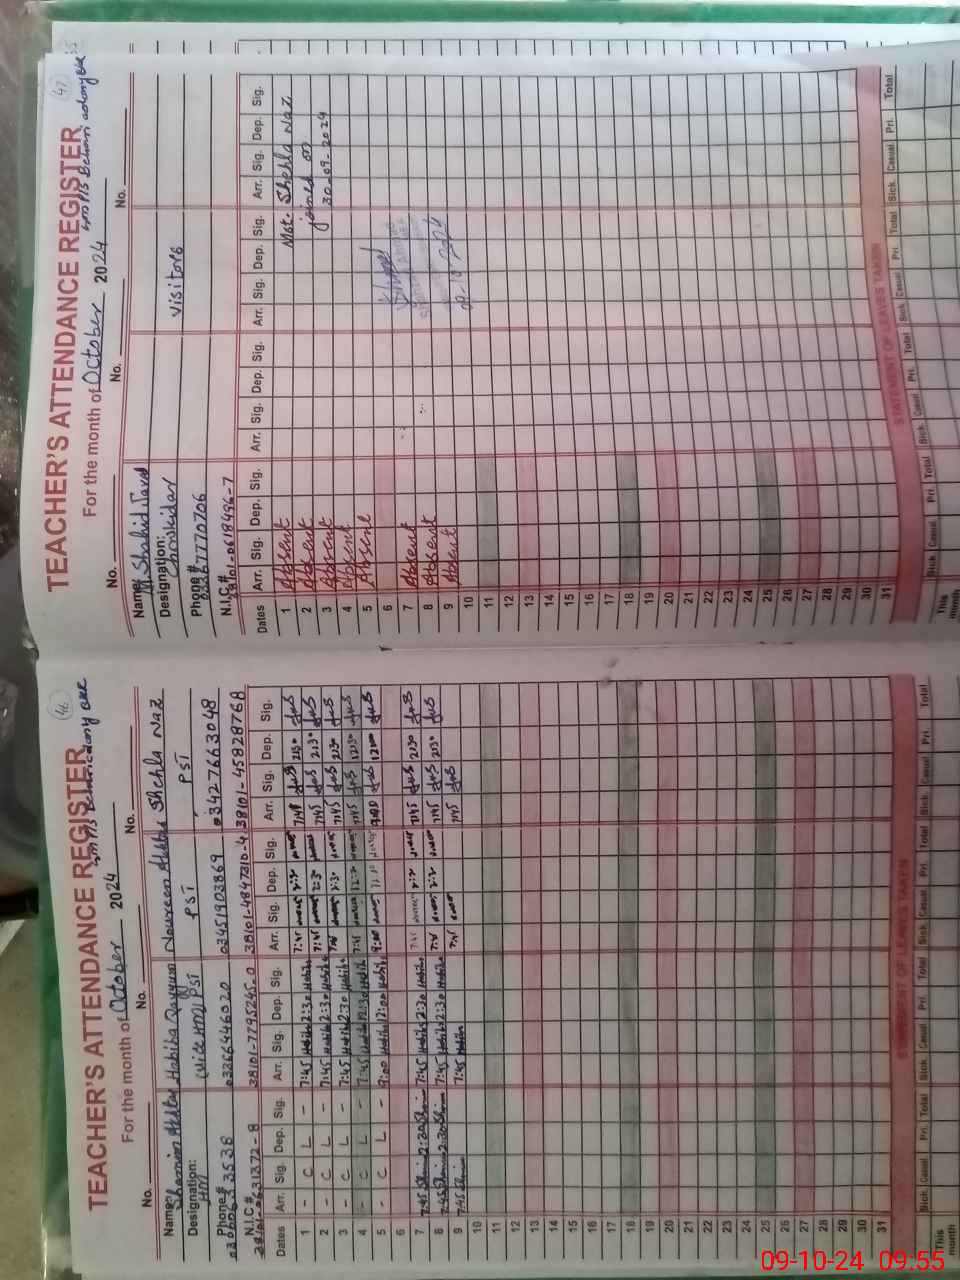 46
TEACHER'S ATTENDANCE REGISTER
For the month of October 2024
No. No. No.
Name: Habiba Qayyum Noureen Akhtar Shehla Naz
Designation: HM PST PST
Phone# 03266446020 03451903869 03427663048
N.I.C # 38101-7795245-0 38101-4847310-4 38101-4582876-8
Dates Arr. Sig. Dep. Sig. Arr. Sig. Dep. Sig. Arr. Sig. Dep. Sig. Arr. Sig. Dep. Sig.
1 - C L - 7:45 Habib 2:30 Habib 7:45 7:45 2:30
2 - C L - 7:45 Habib 2:30 Habib 7:45 2:30 7:45 2:30
3 - C L - 7:45 Habib 2:30 Habib 7:45 2:30 7:45 2:30
4 - C L - 7:45 Habib 12:30 Habib 7:45 7:45 12:30
5 - C L - 9:00 Habib 12:00 Habib 9:00 9:00 12:00
6
7 7:45 2:30 7:45 Habib 2:30 Habib 7:45 7:45 2:30
8 7:45 2:30 7:45 Habib 2:30 Habib 7:45 7:45 2:30
9 7:45 7:45 Habib 7:45 7:45
10
11
12
13
14
15
16
17
18
19
20
21
22
23
24
25
26
27
28
29
30
31
STATEMENT OF LEAVES TAKEN
Sick Casual Pri. Total Sick Casual Pri. Total Sick Casual Pri. Total Sick Casual Pri. Total
This month
47
TEACHER'S ATTENDANCE REGISTER
For the month of October 2024
No. No. No.
Name: M. Shahid
Designation: Chowkidar Visitors
Phone #
N.I.C # 38101-0618496-7
Dates Arr. Sig. Dep. Sig. Arr. Sig. Dep. Sig. Arr. Sig. Dep. Sig. Arr. Sig. Dep. Sig.
1 Absent Mst. Shehla Naz
2 Absent joined on
3 Absent 30-09-2024
4 Absent
5 Absent
6
7 Absent
8 Absent
9 Absent 09-10-2024
10
11
12
13
14
15
16
17
18
19
20
21
22
23
24
25
26
27
28
29
30
31
STATEMENT OF LEAVES TAKEN
Sick Casual Pri. Total Sick Casual Pri. Total Sick Casual Pri. Total Sick Casual Pri. Total
This month
09-10-24 09:55